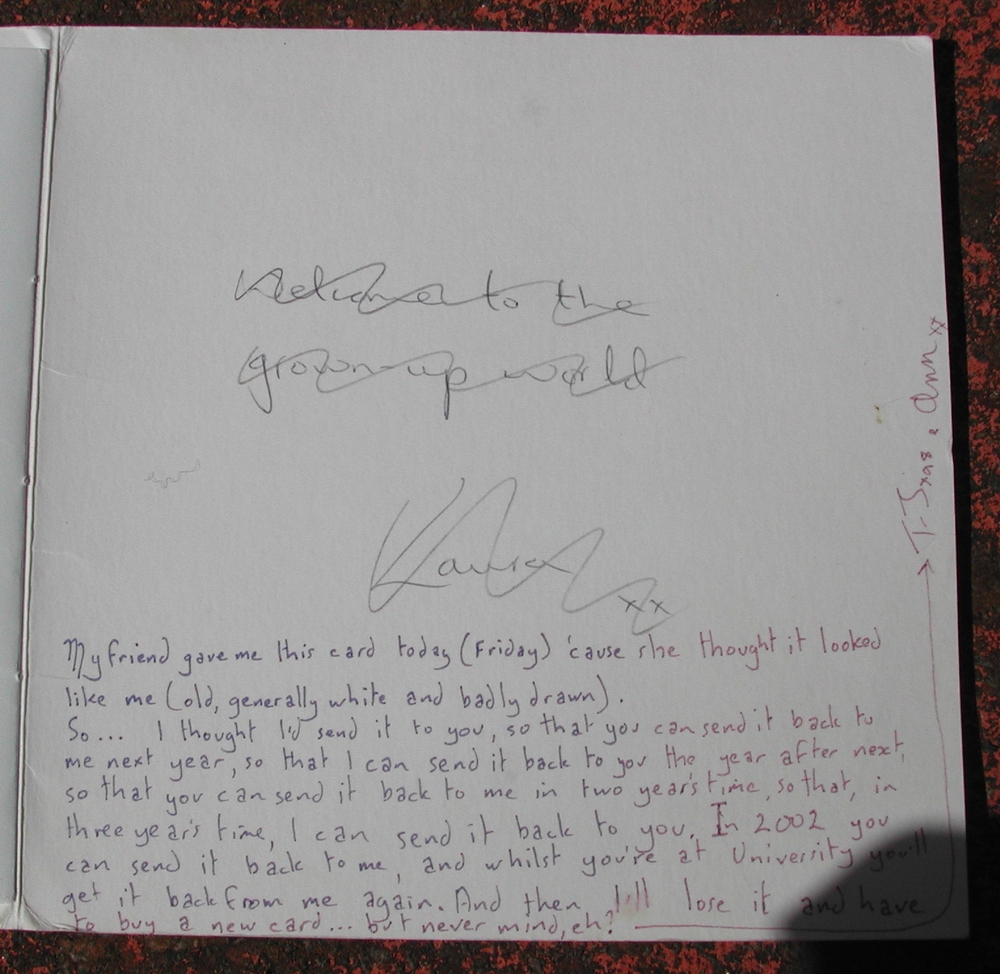 Welcome to the
grown-up world
xx
My friend gave me this card today (Friday) 'cause she thought it looked
like me (old, generally white and badly drawn).
So... I thought I'd send it to you, so that you can send it back to
me next year, so that I can send it back to you the year after next,
so that you can send it back to me in two year's time, so that, in
three year's time, I can send it back to you. In 2002 you
can send it back to me, and whilst you're at University you'll
get it back from me again. And then I'll lose it and have
to buy a new card... but never mind, eh?
Ann xx